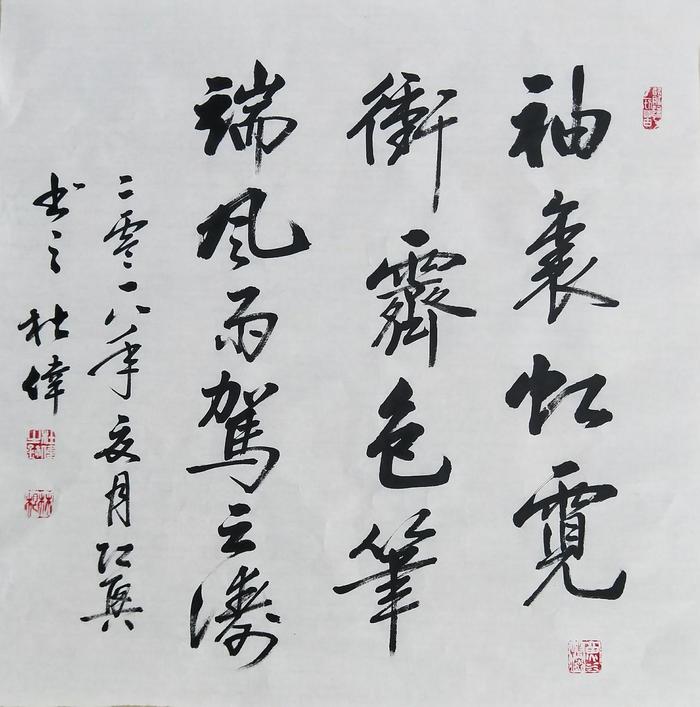 袖裏虹霓
衝霽色筆
端風雨駕云濤
二零一八年夏月江
书之杜偉